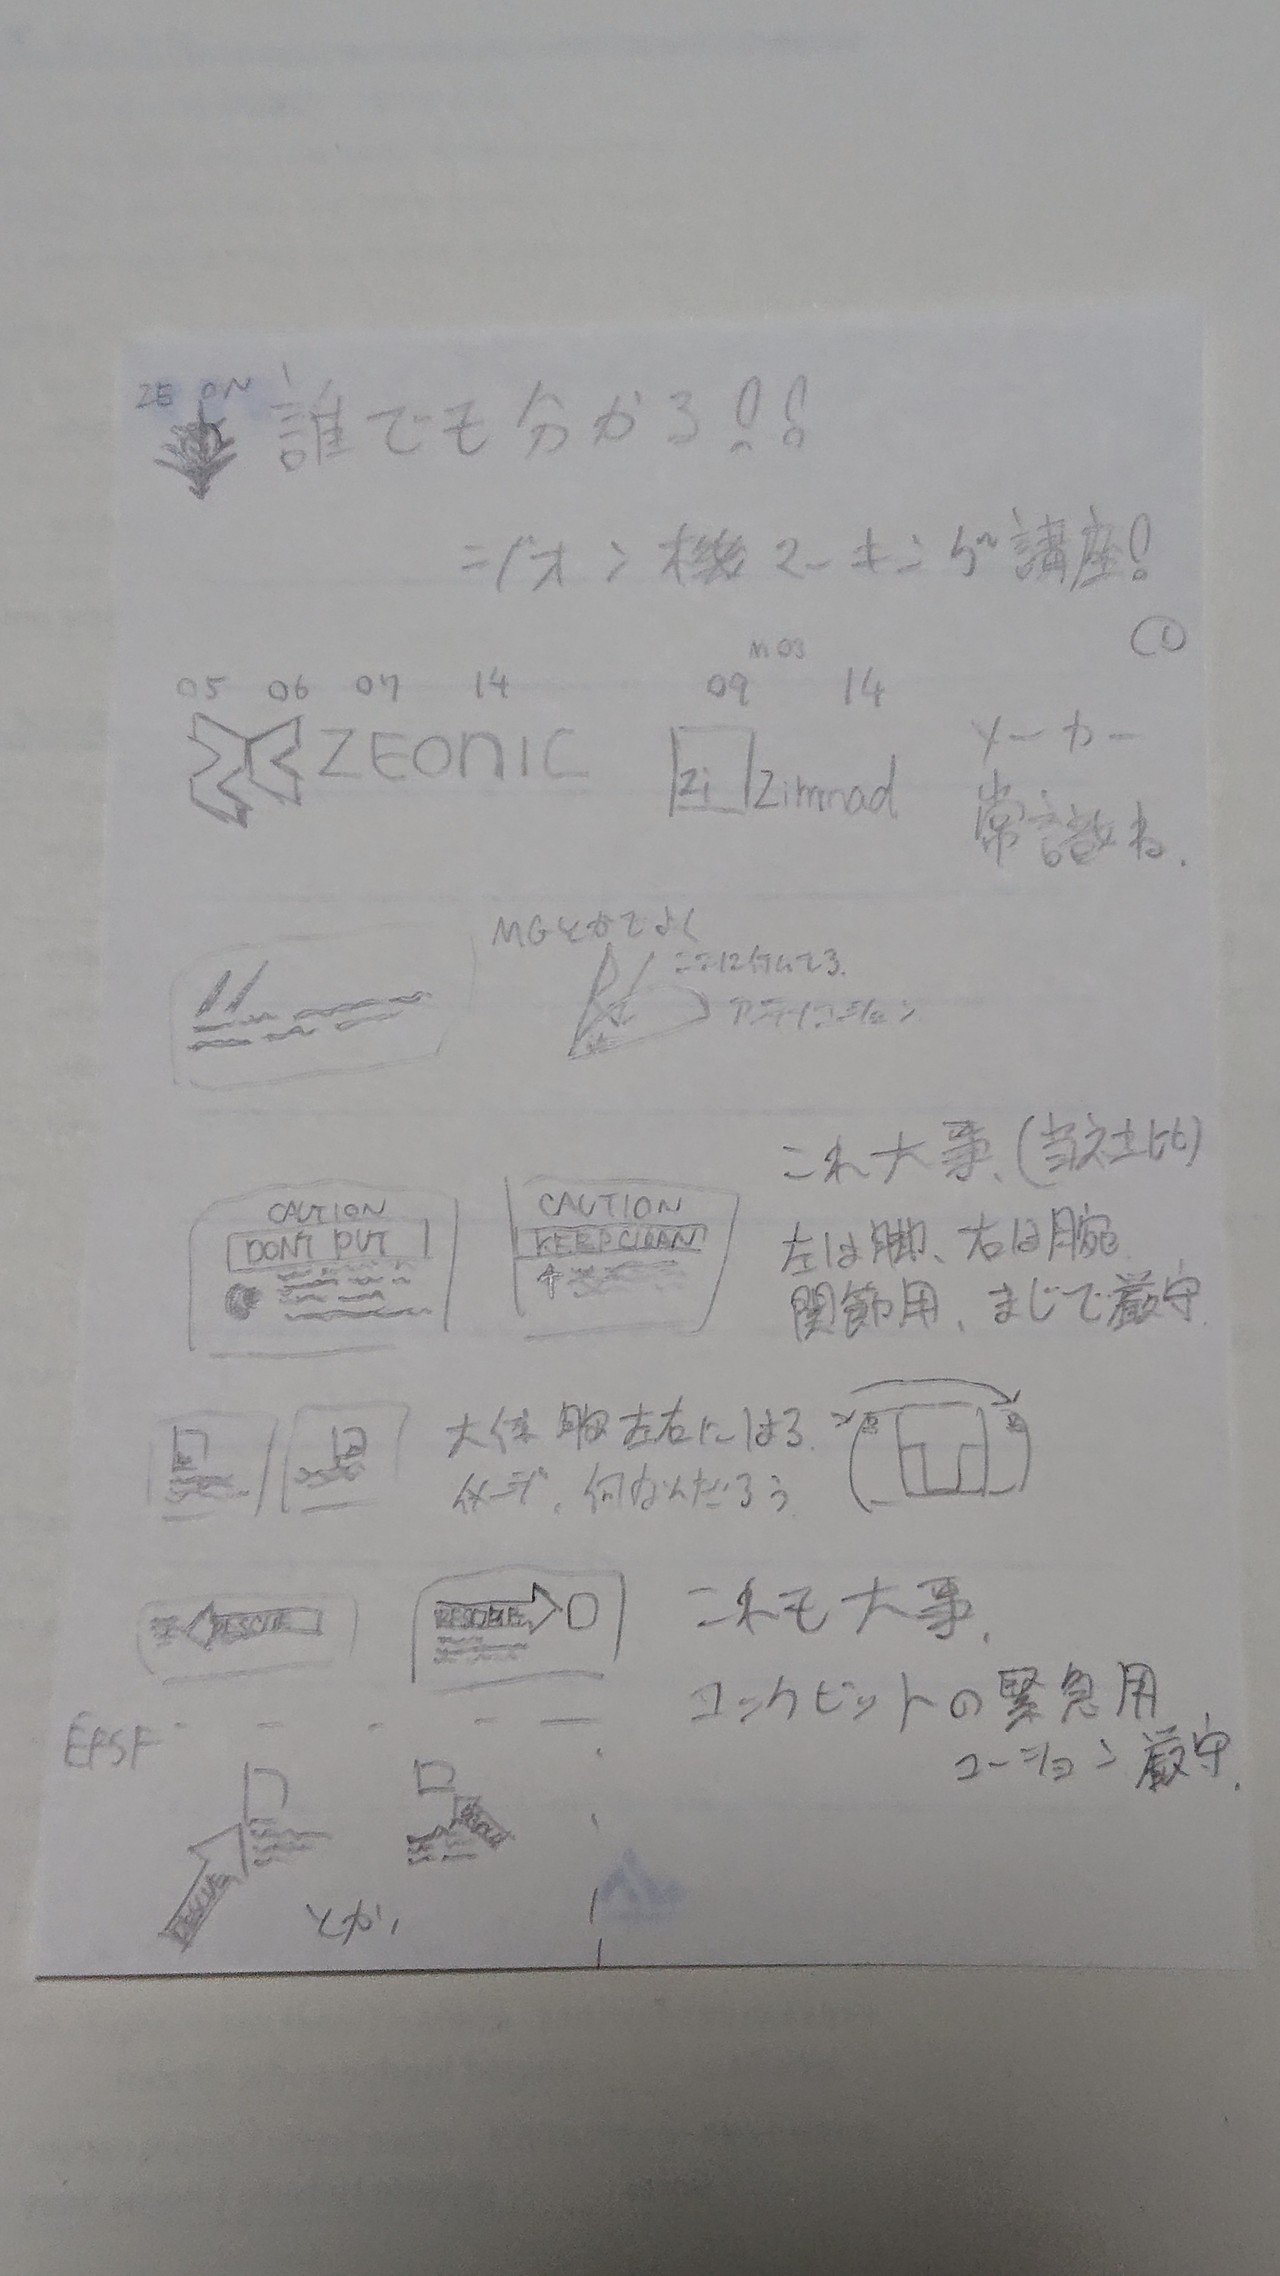 ZEON
誰でも分かる!!
ジオン機マーキング講座!
①
05 06 07 14
ZEONIC
M03
09 14
Zi Zimmad
メーカー
常識ね.
MGとかでよく
ここに付いてる.
CAUTION
DONT PUT
CAUTION
KEEP CLEAN
これ大事、(当社比)
左は脚、右は腕
関節用、まじで厳守
大体 胸 左右にはる.
イメージ、何なんだろう
RESCUE
RESCUE
これも大事.
コックピットの緊急用
コーション厳守.
EFSF
RESCUE
RESCUE
とか,